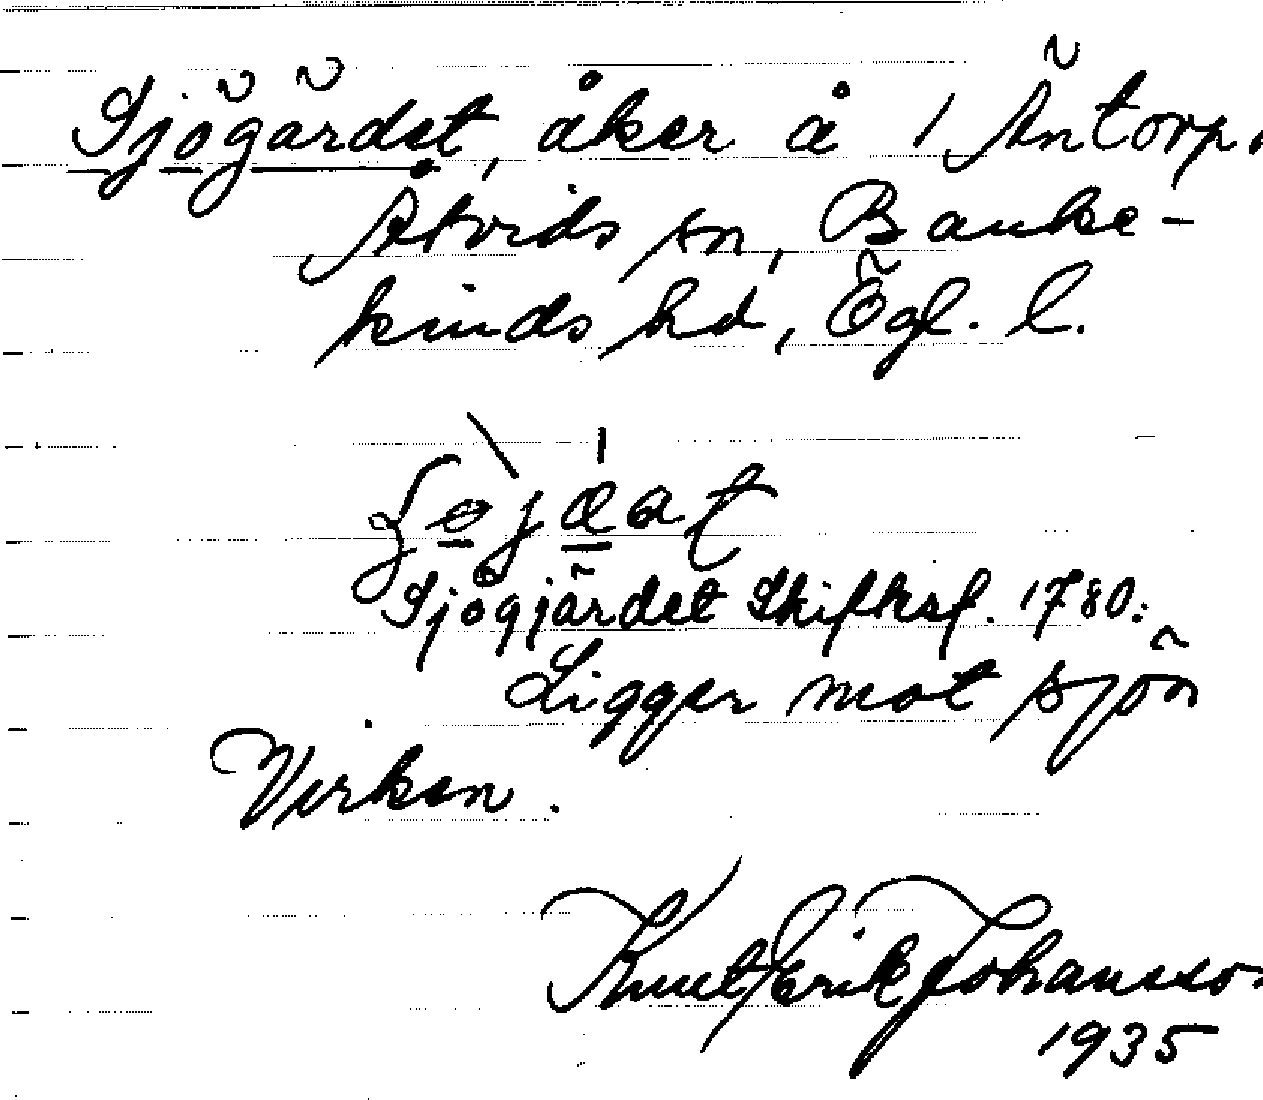 Sjögärdet, åker å 1 Äntorp,
Åtvids sn, Banke-
kinds hd, Ögl. l.
Sjögjärdet Skifteshl. 1780:
Ligger mot sjön
Virken.
Knut Erik Johansson
1935